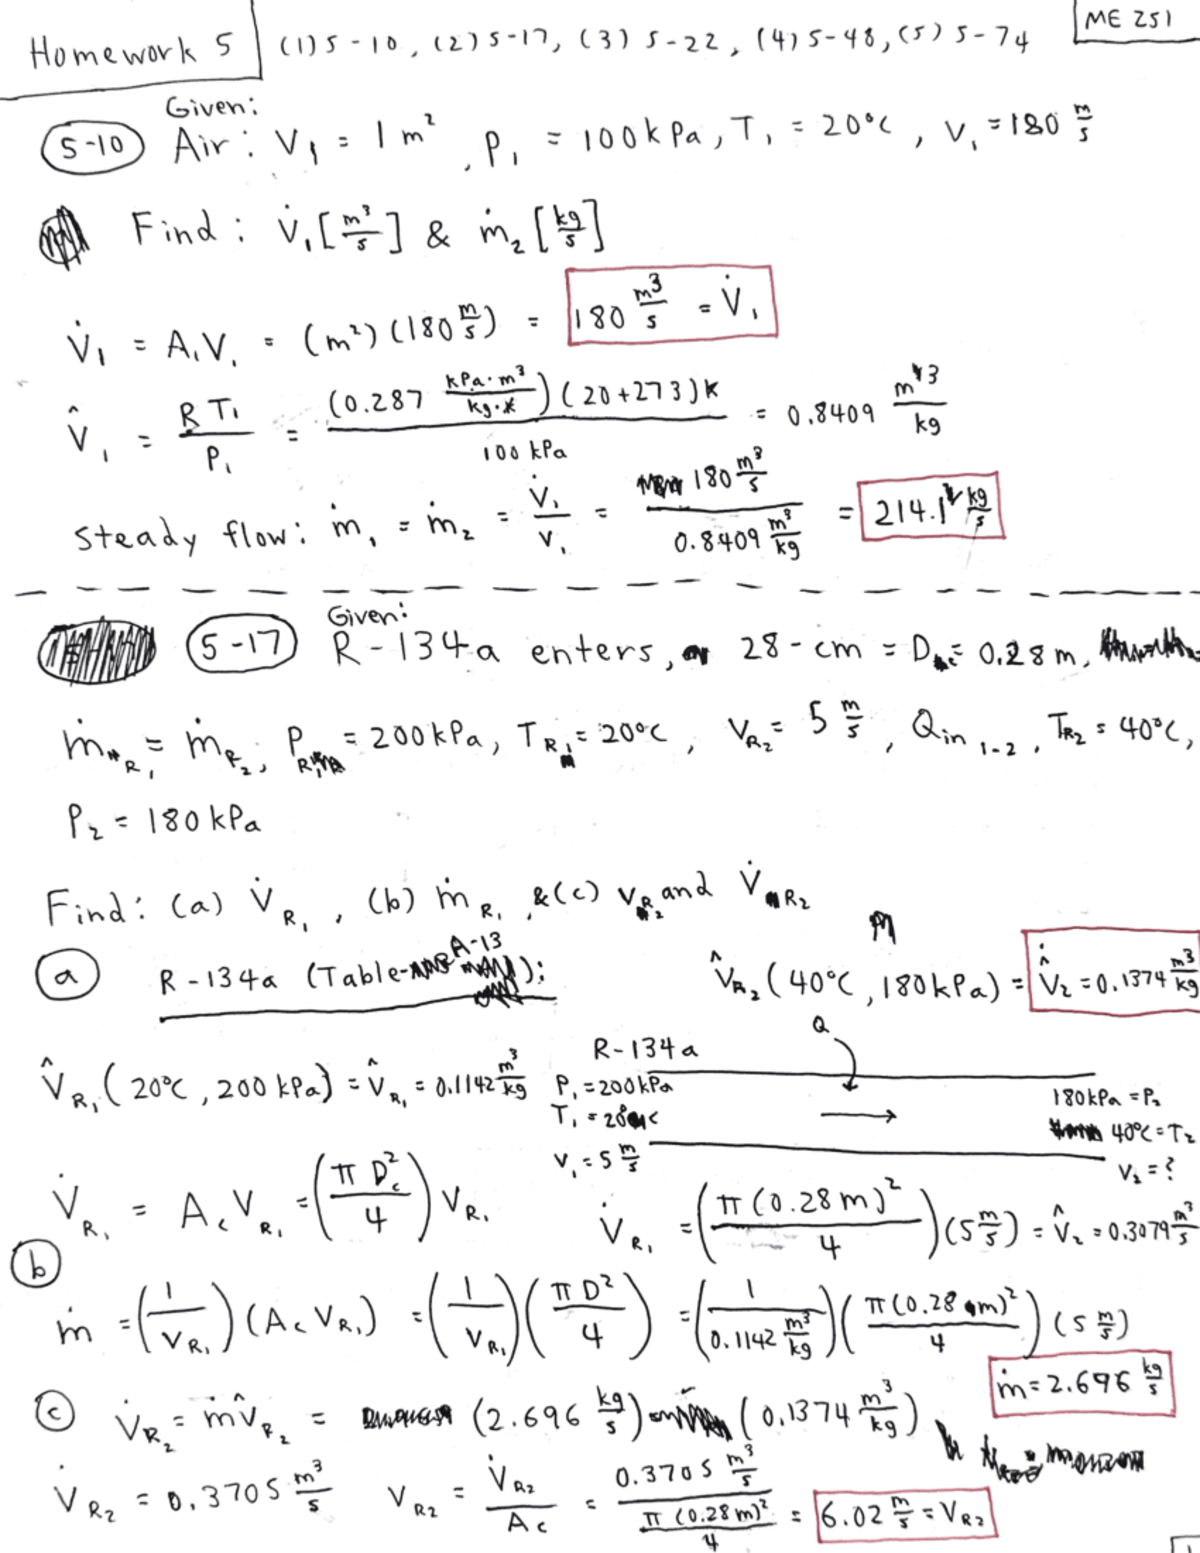 Homework 5
(1) 5-10, (2) 5-17, (3) 5-22, (4) 5-48, (5) 5-74
ME 251
Given:
5-10 Air: V₁ = 1 m², P₁ = 100 kPa, T₁ = 20°C, V₁ = 180 m/s
Find: V̇₁ [m³/s] & ṁ₂ [kg/s]
V̇₁ = A₁V₁ = (m²)(180 m/s) = 180 m³/s = V̇₁
V̂₁ = RT₁/P₁ = (0.287 kPa·m³/kg·K)(20+273)K / 100 kPa = 0.8409 m³/kg
steady flow: ṁ₁ = ṁ₂ = V̇₁/V₁ = 180 m³/s / 0.8409 m³/kg = 214.1 kg/s
Given:
5-17 R-134a enters, 28-cm = D = 0.28 m,
ṁ_R₁ = ṁ_R₂, P_R₁ = 200 kPa, T_R₁ = 20°C, V_R₂ = 5 m/s, Q_in 1-2, T_R₂ = 40°C,
P₂ = 180 kPa
Find: (a) V̇_R₁, (b) ṁ_R₁, & (c) V_R₂ and V̇_R₂
a R-134a (Table- A-13):
V̂_R₂ (40°C, 180 kPa) = V̂₂ = 0.1374 m³/kg
V̂_R₁ (20°C, 200 kPa) = V̂_R₁ = 0.1142 m³/kg
R-134a
Q
P₁ = 200 kPa
T₁ = 20°C
V₁ = 5 m/s
180 kPa = P₂
40°C = T₂
V₂ = ?
V̇_R₁ = A_c V_R₁ = (π D_c²/4) V_R₁
V̇_R₁ = (π (0.28 m)²/4)(5 m/s) = V̂₂ = 0.3079 m³/s
b
ṁ = (1/V_R₁)(A_c V_R₁) = (1/V_R₁)(π D²/4) = (1/0.1142 m³/kg)(π (0.28 m)²/4)(5 m/s)
ṁ = 2.696 kg/s
c V̇_R₂ = ṁ V̂_R₂ = (2.696 kg/s)(0.1374 m³/kg)
V̇_R₂ = 0.3705 m³/s V_R₂ = V̇_R₂/A_c = 0.3705 m³/s / (π (0.28 m)²/4) = 6.02 m/s = V_R₂